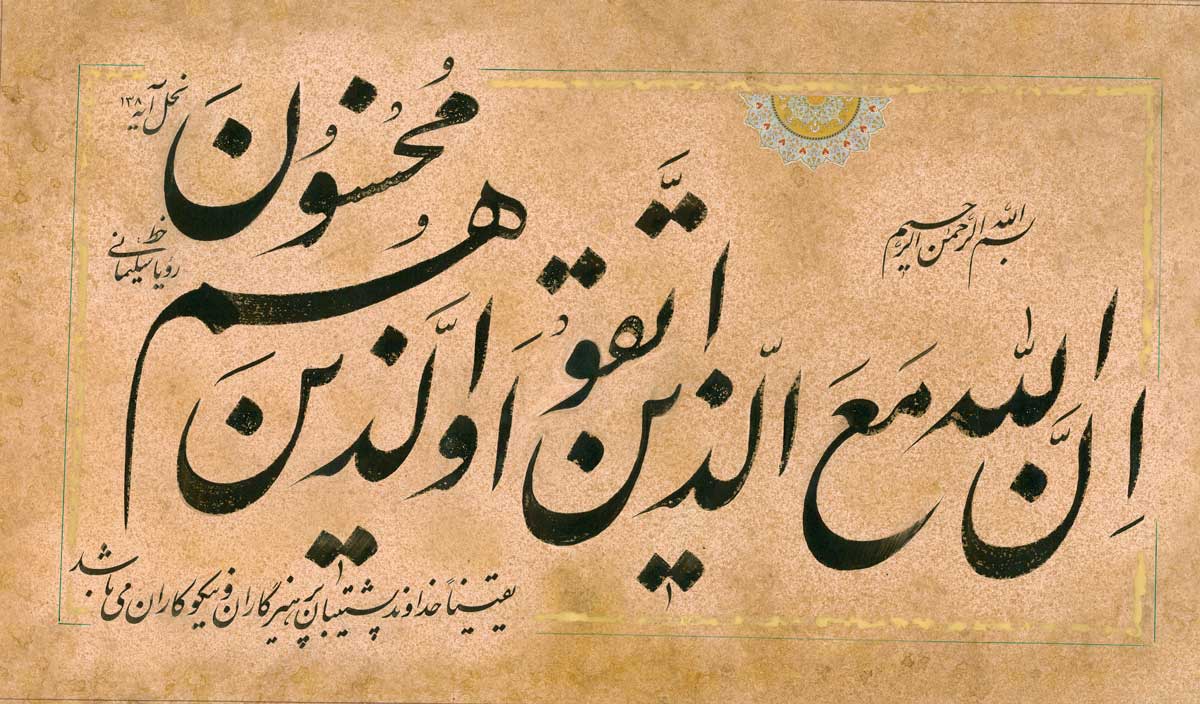 بسم الله الرحمن الرحیم
اِنَّ الله مَعَ الّذین اتَّقوا وَ الَّذینَ هُم مُحسنُونَ
نحل آیه ۱۳۸
خط
رویا سلیمانی
یقیناً خداوند پشتیبان پرهیزگاران و نیکوکاران می باشد